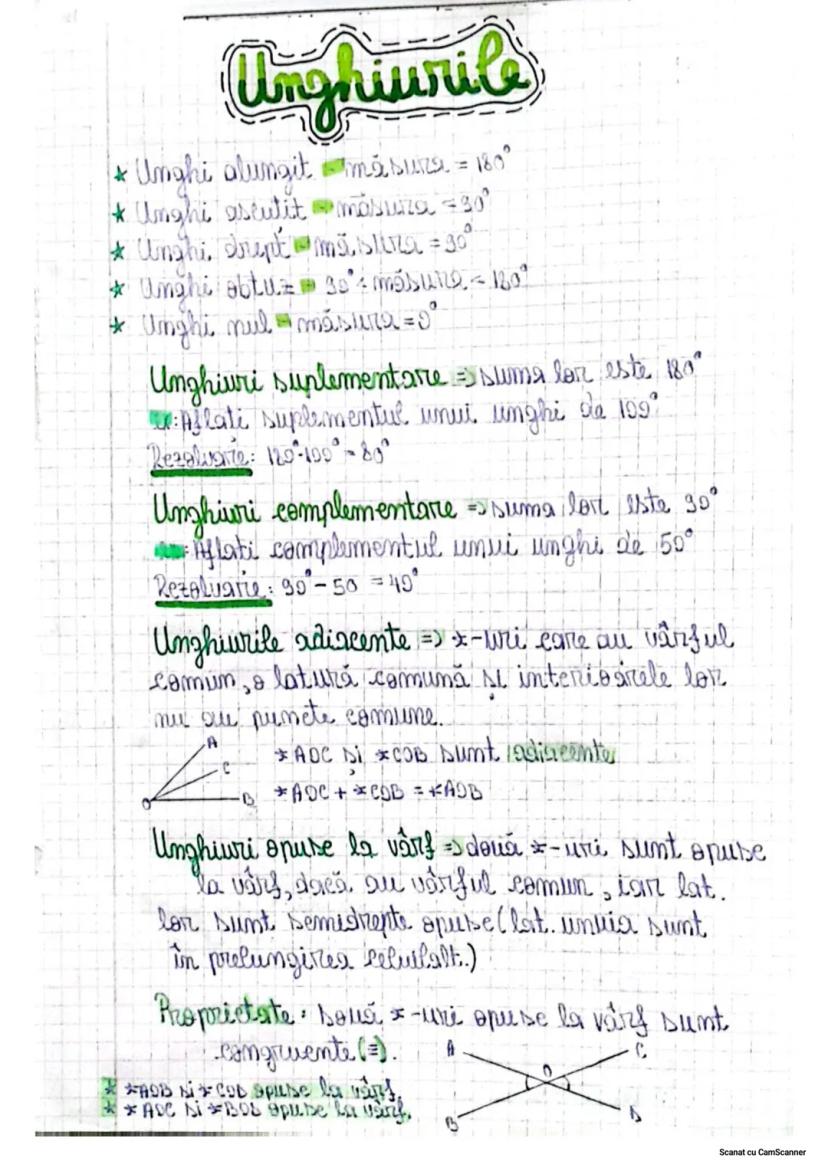 Unghiurile
* Unghi alungit ⇒ măsura = 180°
* Unghi ascutit ⇒ măsura < 90°
* Unghi drept ⇒ măsura = 90°
* Unghi obtuz ⇒ 90° < măsura < 180°
* Unghi nul ⇒ măsura = 0°
Unghiuri suplementare => suma lor este 180°
Aflati suplementul unui unghi de 100°
Rezolvare: 180°-100° = 80°
Unghiuri complementare => suma lor este 90°
Aflati complementul unui unghi de 50°
Rezolvare: 90° - 50 = 40°
Unghiurile adiacente => ∢-uri care au vârful
comun, o latură comună și interioarele lor
nu au puncte comune.
A
C
O
B
∢AOC și ∢COB sunt adiacente
∢AOC + ∢COB = ∢AOB
Unghiuri opuse la vârf => două ∢-uri sunt opuse
la vârf, dacă au vârful comun, iar lat.
lor sunt semidrepte opuse (lat. unuia sunt
în prelungirea celuilalt.)
Proprietate: două ∢-uri opuse la vârf sunt
congruente (≡).
A
C
O
B
D
* ∢AOB si ∢COD opuse la vârf.
* ∢AOC si ∢BOD opuse la vârf.
Scanat cu CamScanner